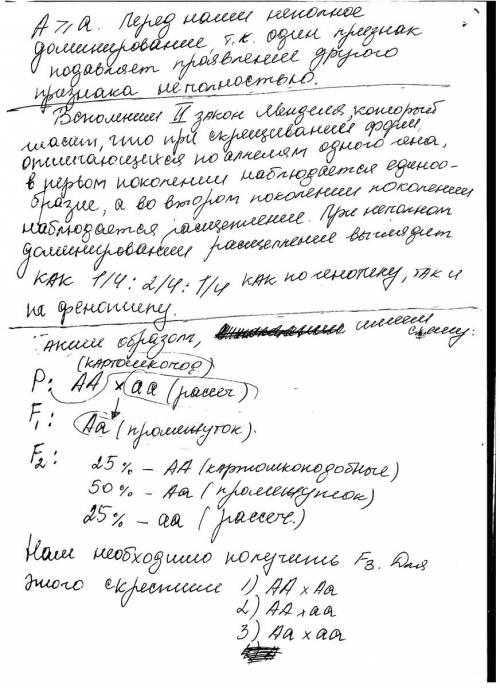 A ⩾ a. Перед нами неполное
доминирование т.к. один признак
подавляет проявление другого
признака неполностью.
Вспомним II закон Менделя, который
гласит, что при скрещивании форм,
отличающихся по аллелям одного гена,
в первом поколении наблюдается единоо-
бразие, а во втором поколении поколении
наблюдается расщепление. При неполном
доминировании расщепление выглядит
как 1/4 : 2/4 : 1/4 как по генотипу, так и
по фенотипу.
аким образом, имеем схему:
(картошкопод)
P: AA × aa (рассеч)
F₁: Aa (промежуток).
F₂: 25% – AA (картошкоподобные)
50% – Aa (промежуток)
25% – aa (рассеч.)
Нам необходимо получить F₃. Для
этого скрестим 1) AA × Aa
2) AA × aa
3) Aa × aa